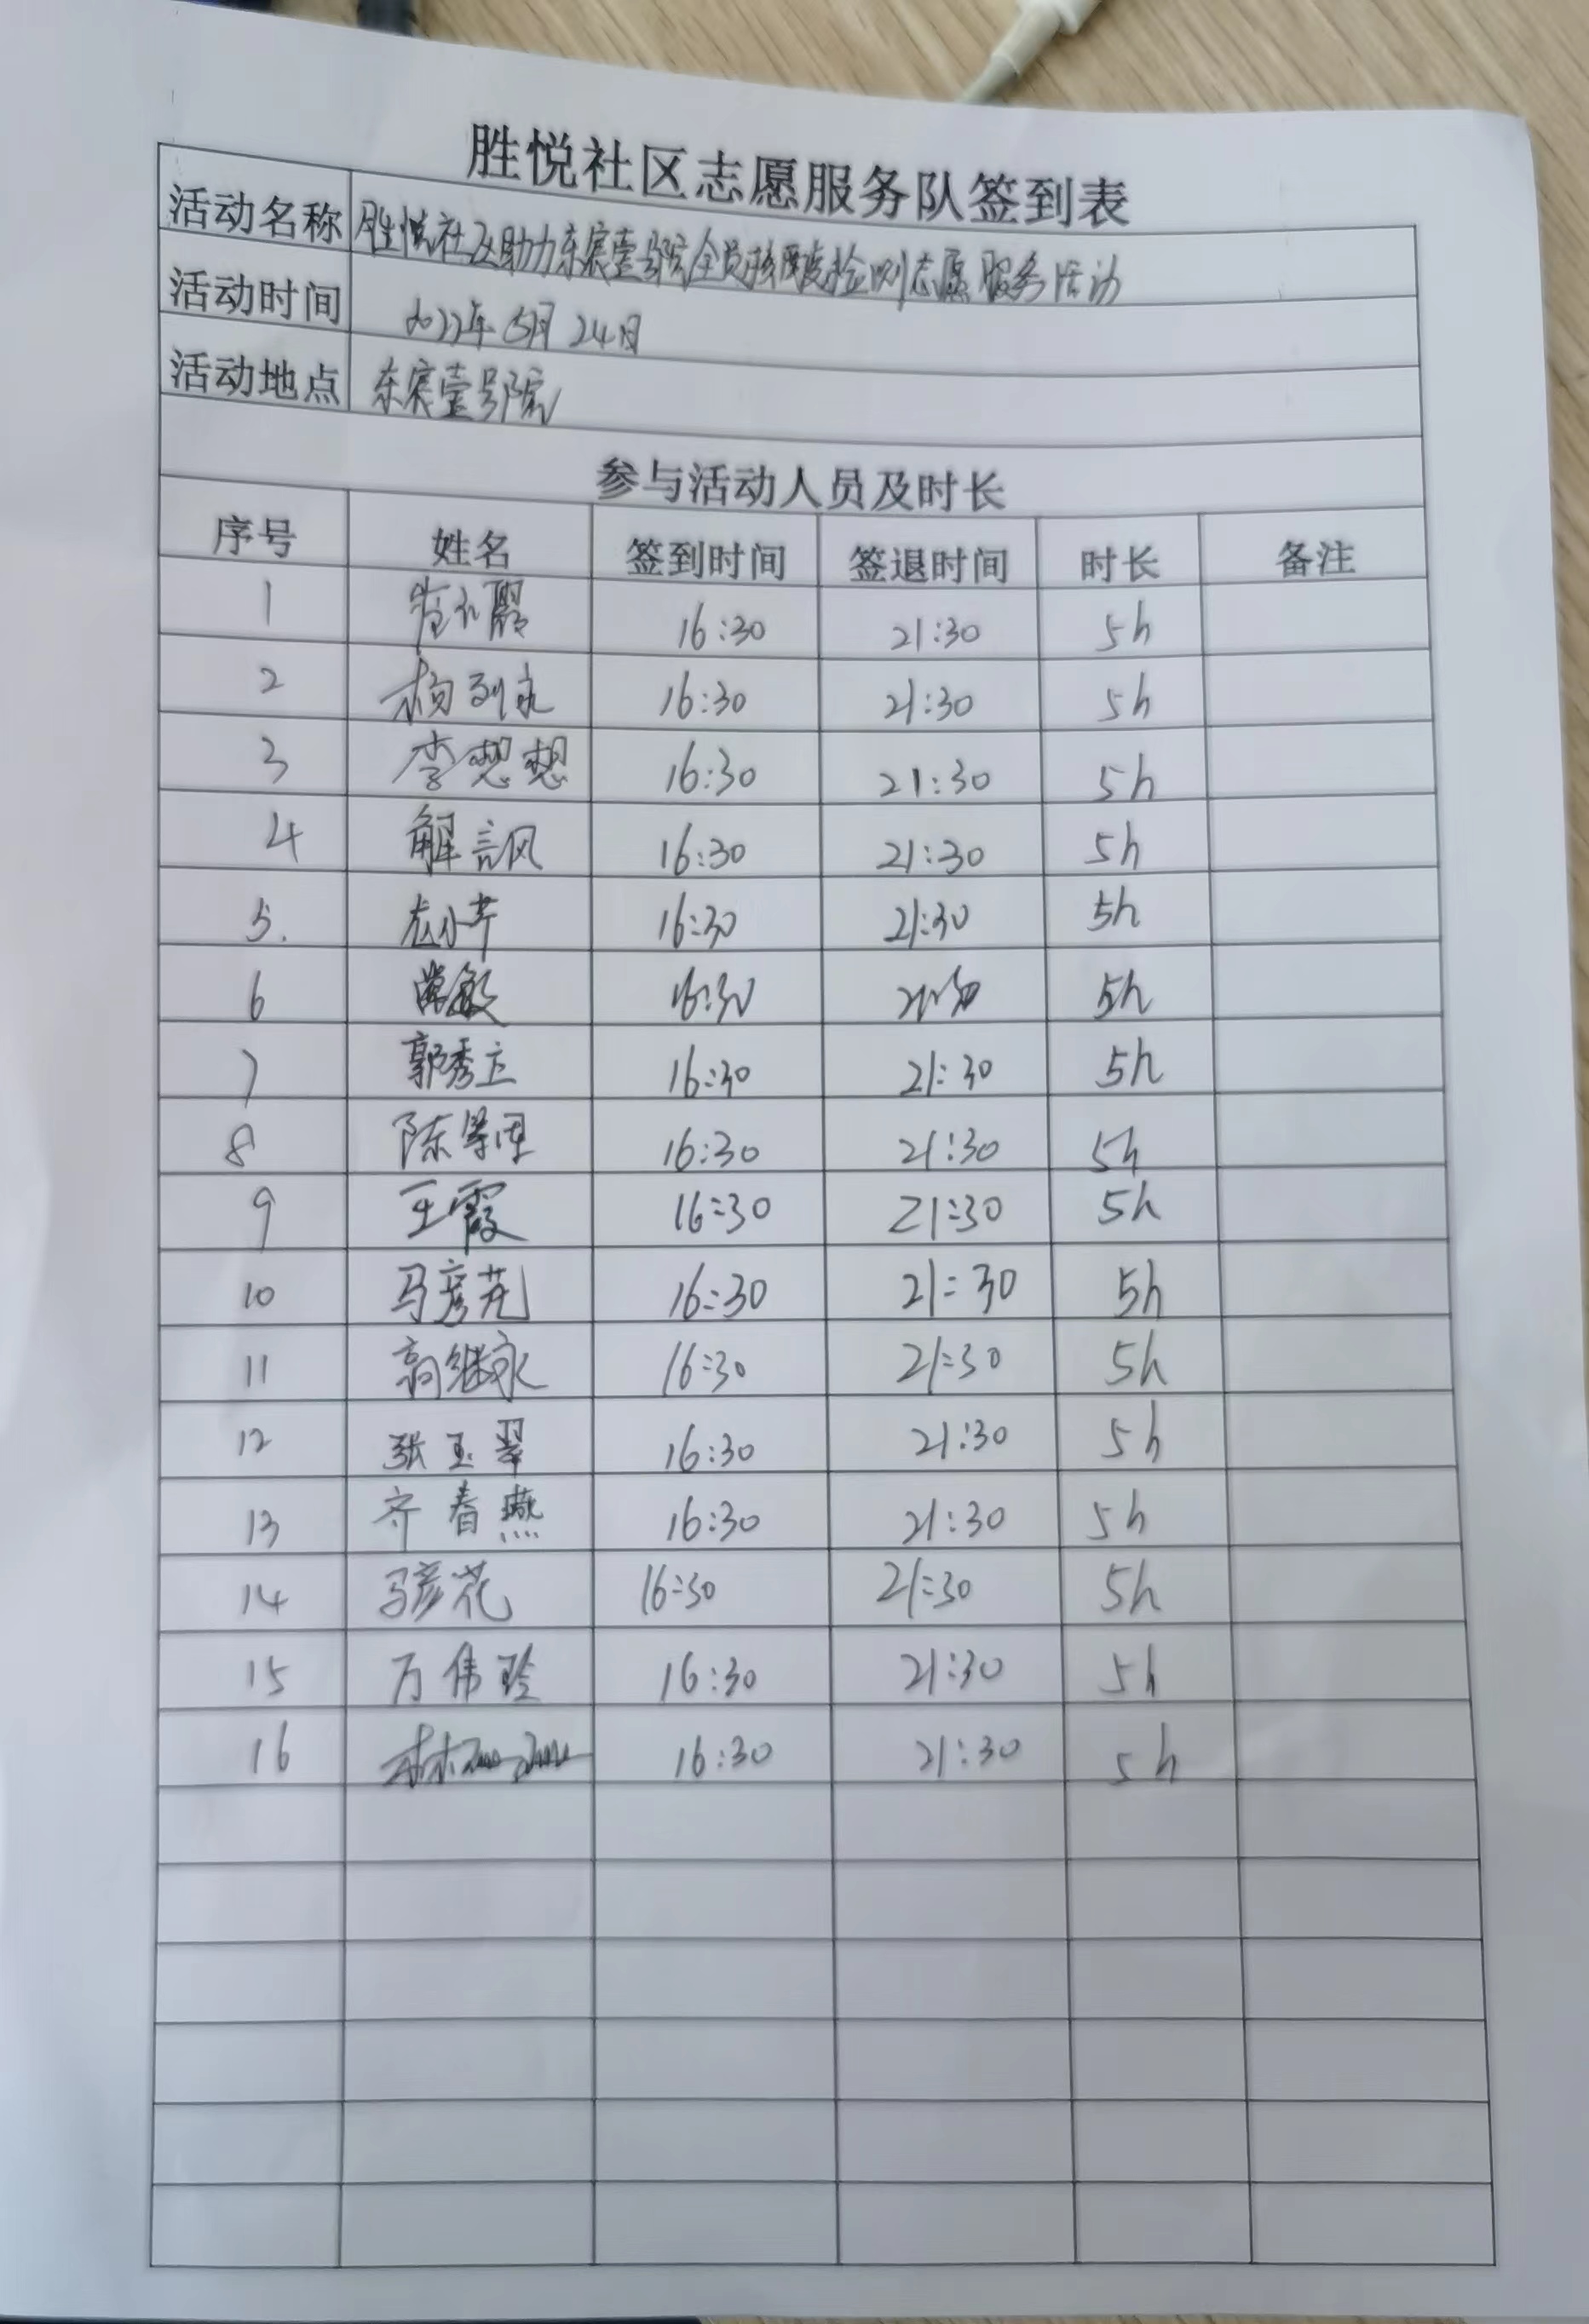 胜悦社区志愿服务队签到表
活动名称 胜悦社区助力东宸壹号院全员核酸检测志愿服务活动
活动时间 2022年5月24日
活动地点 东宸壹号院
参与活动人员及时长
序号 姓名 签到时间 签退时间 时长 备注
1 16:30 21:30 5h
2 杨列永 16:30 21:30 5h
3 李想想 16:30 21:30 5h
4 解讽 16:30 21:30 5h
5. 16:30 21:30 5h
6 常敏 16:30 21:30 5h
7 郭秀立 16:30 21:30 5h
8 陈 16:30 21:30 5h
9 王霞 16:30 21:30 5h
10 马彦苑 16:30 21:30 5h
11 高继永 16:30 21:30 5h
12 张玉翠 16:30 21:30 5h
13 齐春燕 16:30 21:30 5h
14 马彦花 16:30 21:30 5h
15 万伟玲 16:30 21:30 5h
16 16:30 21:30 5h